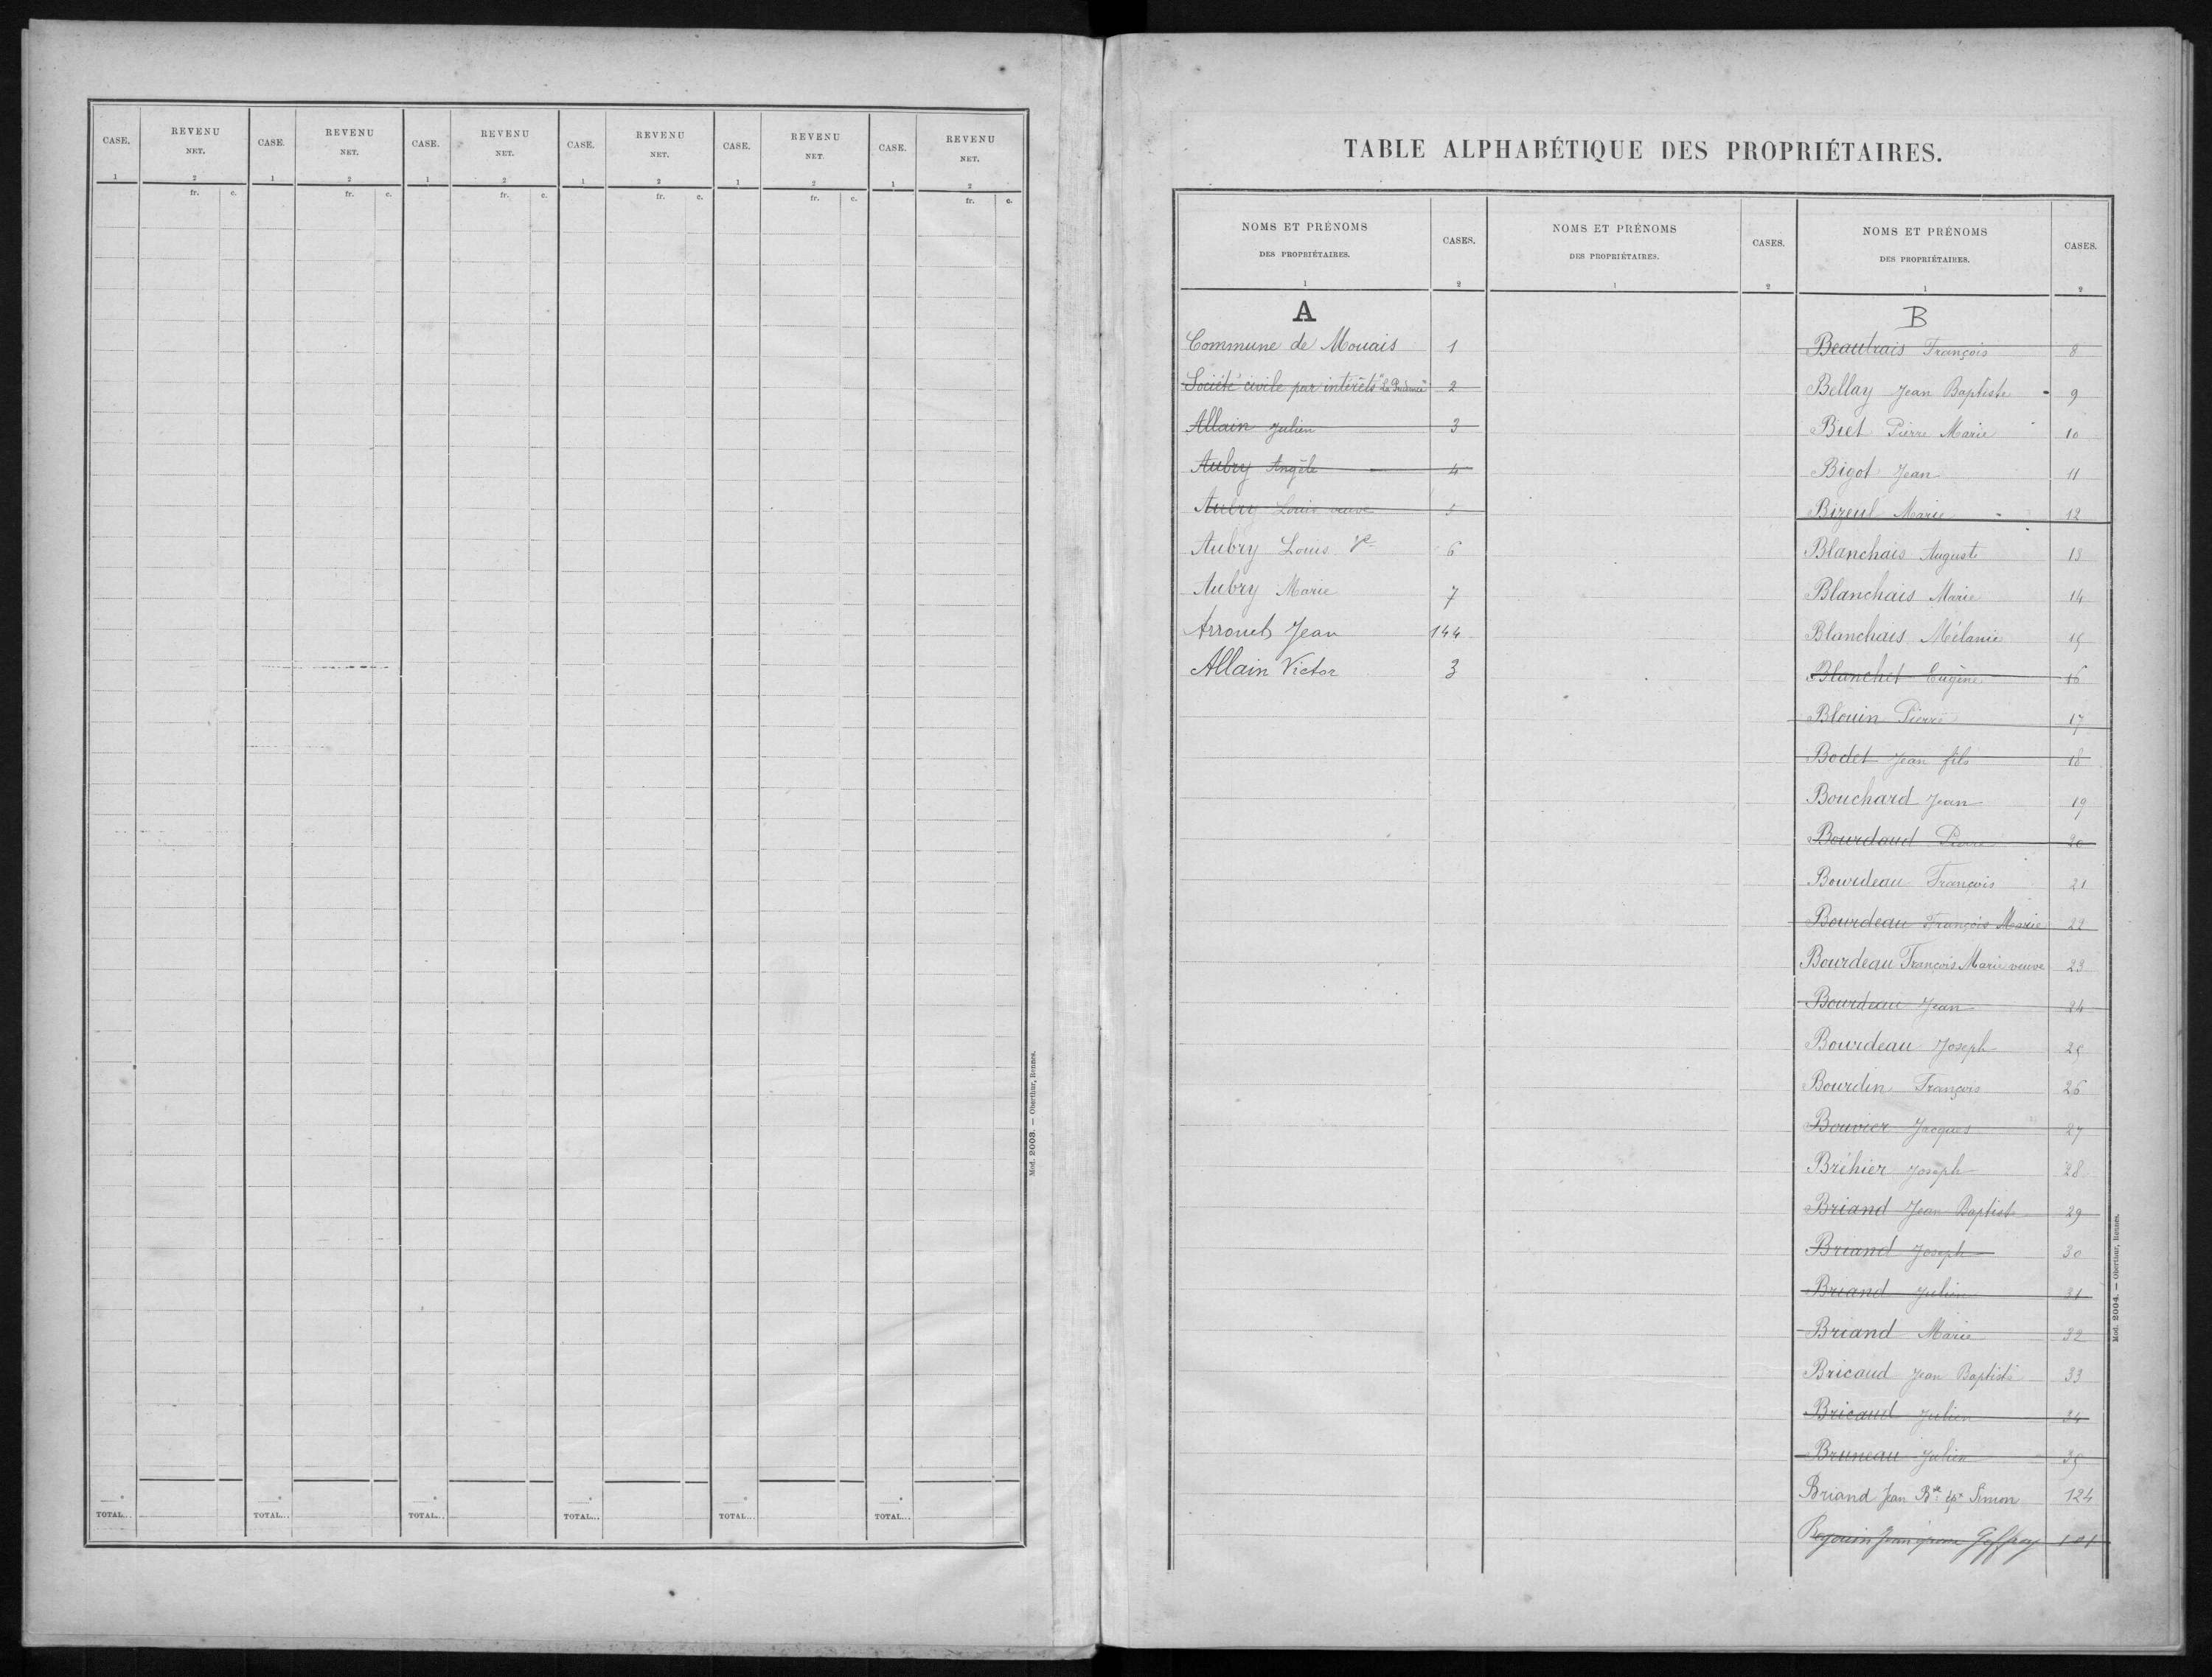 CASE. REVENU NET. CASE. REVENU NET. CASE. REVENU NET. CASE. REVENU NET. CASE. REVENU NET. CASE. REVENU NET.
1 2 1 2 1 2 1 2 1 2 1 2
fr. c. fr. c. fr. c. fr. c. fr. c. fr. c.
TOTAL... TOTAL... TOTAL... TOTAL... TOTAL... TOTAL...
Mod. 2003. — Oberthur, Rennes.
TABLE ALPHABÉTIQUE DES PROPRIÉTAIRES.
NOMS ET PRÉNOMS
DES PROPRIÉTAIRES.
CASES.
1 2
A
Commune de Mouais 1
Société civile par intérêts "La Prudence" 2
Allain Julien 3
Aubry Angèle 4
Aubry Louis veuve 5
Aubry Louis Ve 6
Aubry Marie 7
Arrouet Jean 144
Allain Victor 3
NOMS ET PRÉNOMS
DES PROPRIÉTAIRES.
CASES.
1 2
NOMS ET PRÉNOMS
DES PROPRIÉTAIRES.
CASES.
1 2
B
Beautrais François 8
Bellay Jean Baptiste 9
Biet Pierre Marie 10
Bigot Jean 11
Bizeul Marie 12
Blanchais Auguste 13
Blanchais Marie 14
Blanchais Mélanie 15
Blanchet Eugène 16
Blouin Pierre 17
Bodet Jean fils 18
Bouchard Jean 19
Bourdaud Pierre 20
Bourdeau François 21
Bourdeau François Marie 22
Bourdeau François Marie veuve 23
Bourdeau Jean 24
Bourdeau Joseph 25
Bourdin François 26
Bouvier Jacques 27
Bréhier Joseph 28
Briand Jean Baptiste 29
Briand Joseph 30
Briand Julien 31
Briand Marie 32
Bricaud Jean Baptiste 33
Bricaud Julien 34
Bruneau Julien 35
Briand Jean Bte ép. Simon 124
Jean époux Geffray 101
Mod. 2004. — Oberthur, Rennes.